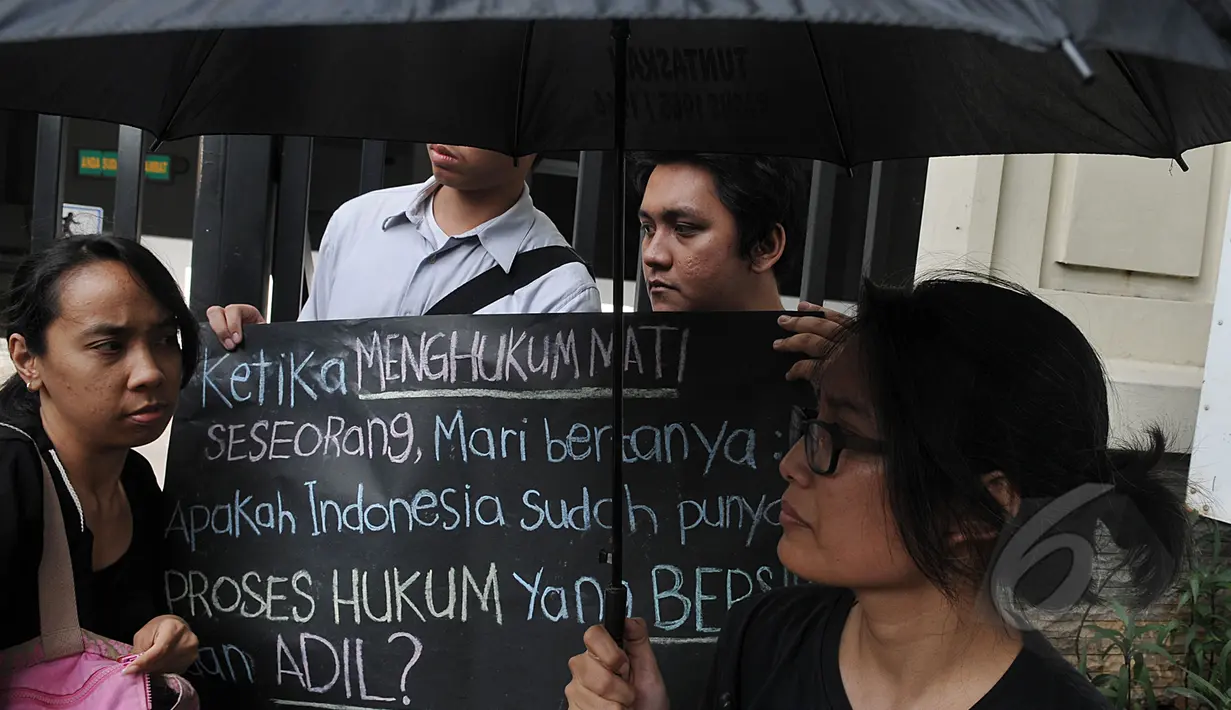 TUNTASKAN
ANDA
Ketika MENGHUKUM MATI
SESEORANG, Mari bertanya :
Apakah Indonesia sudah punya
PROSES HUKUM Yang BERSI
dan ADIL?
6